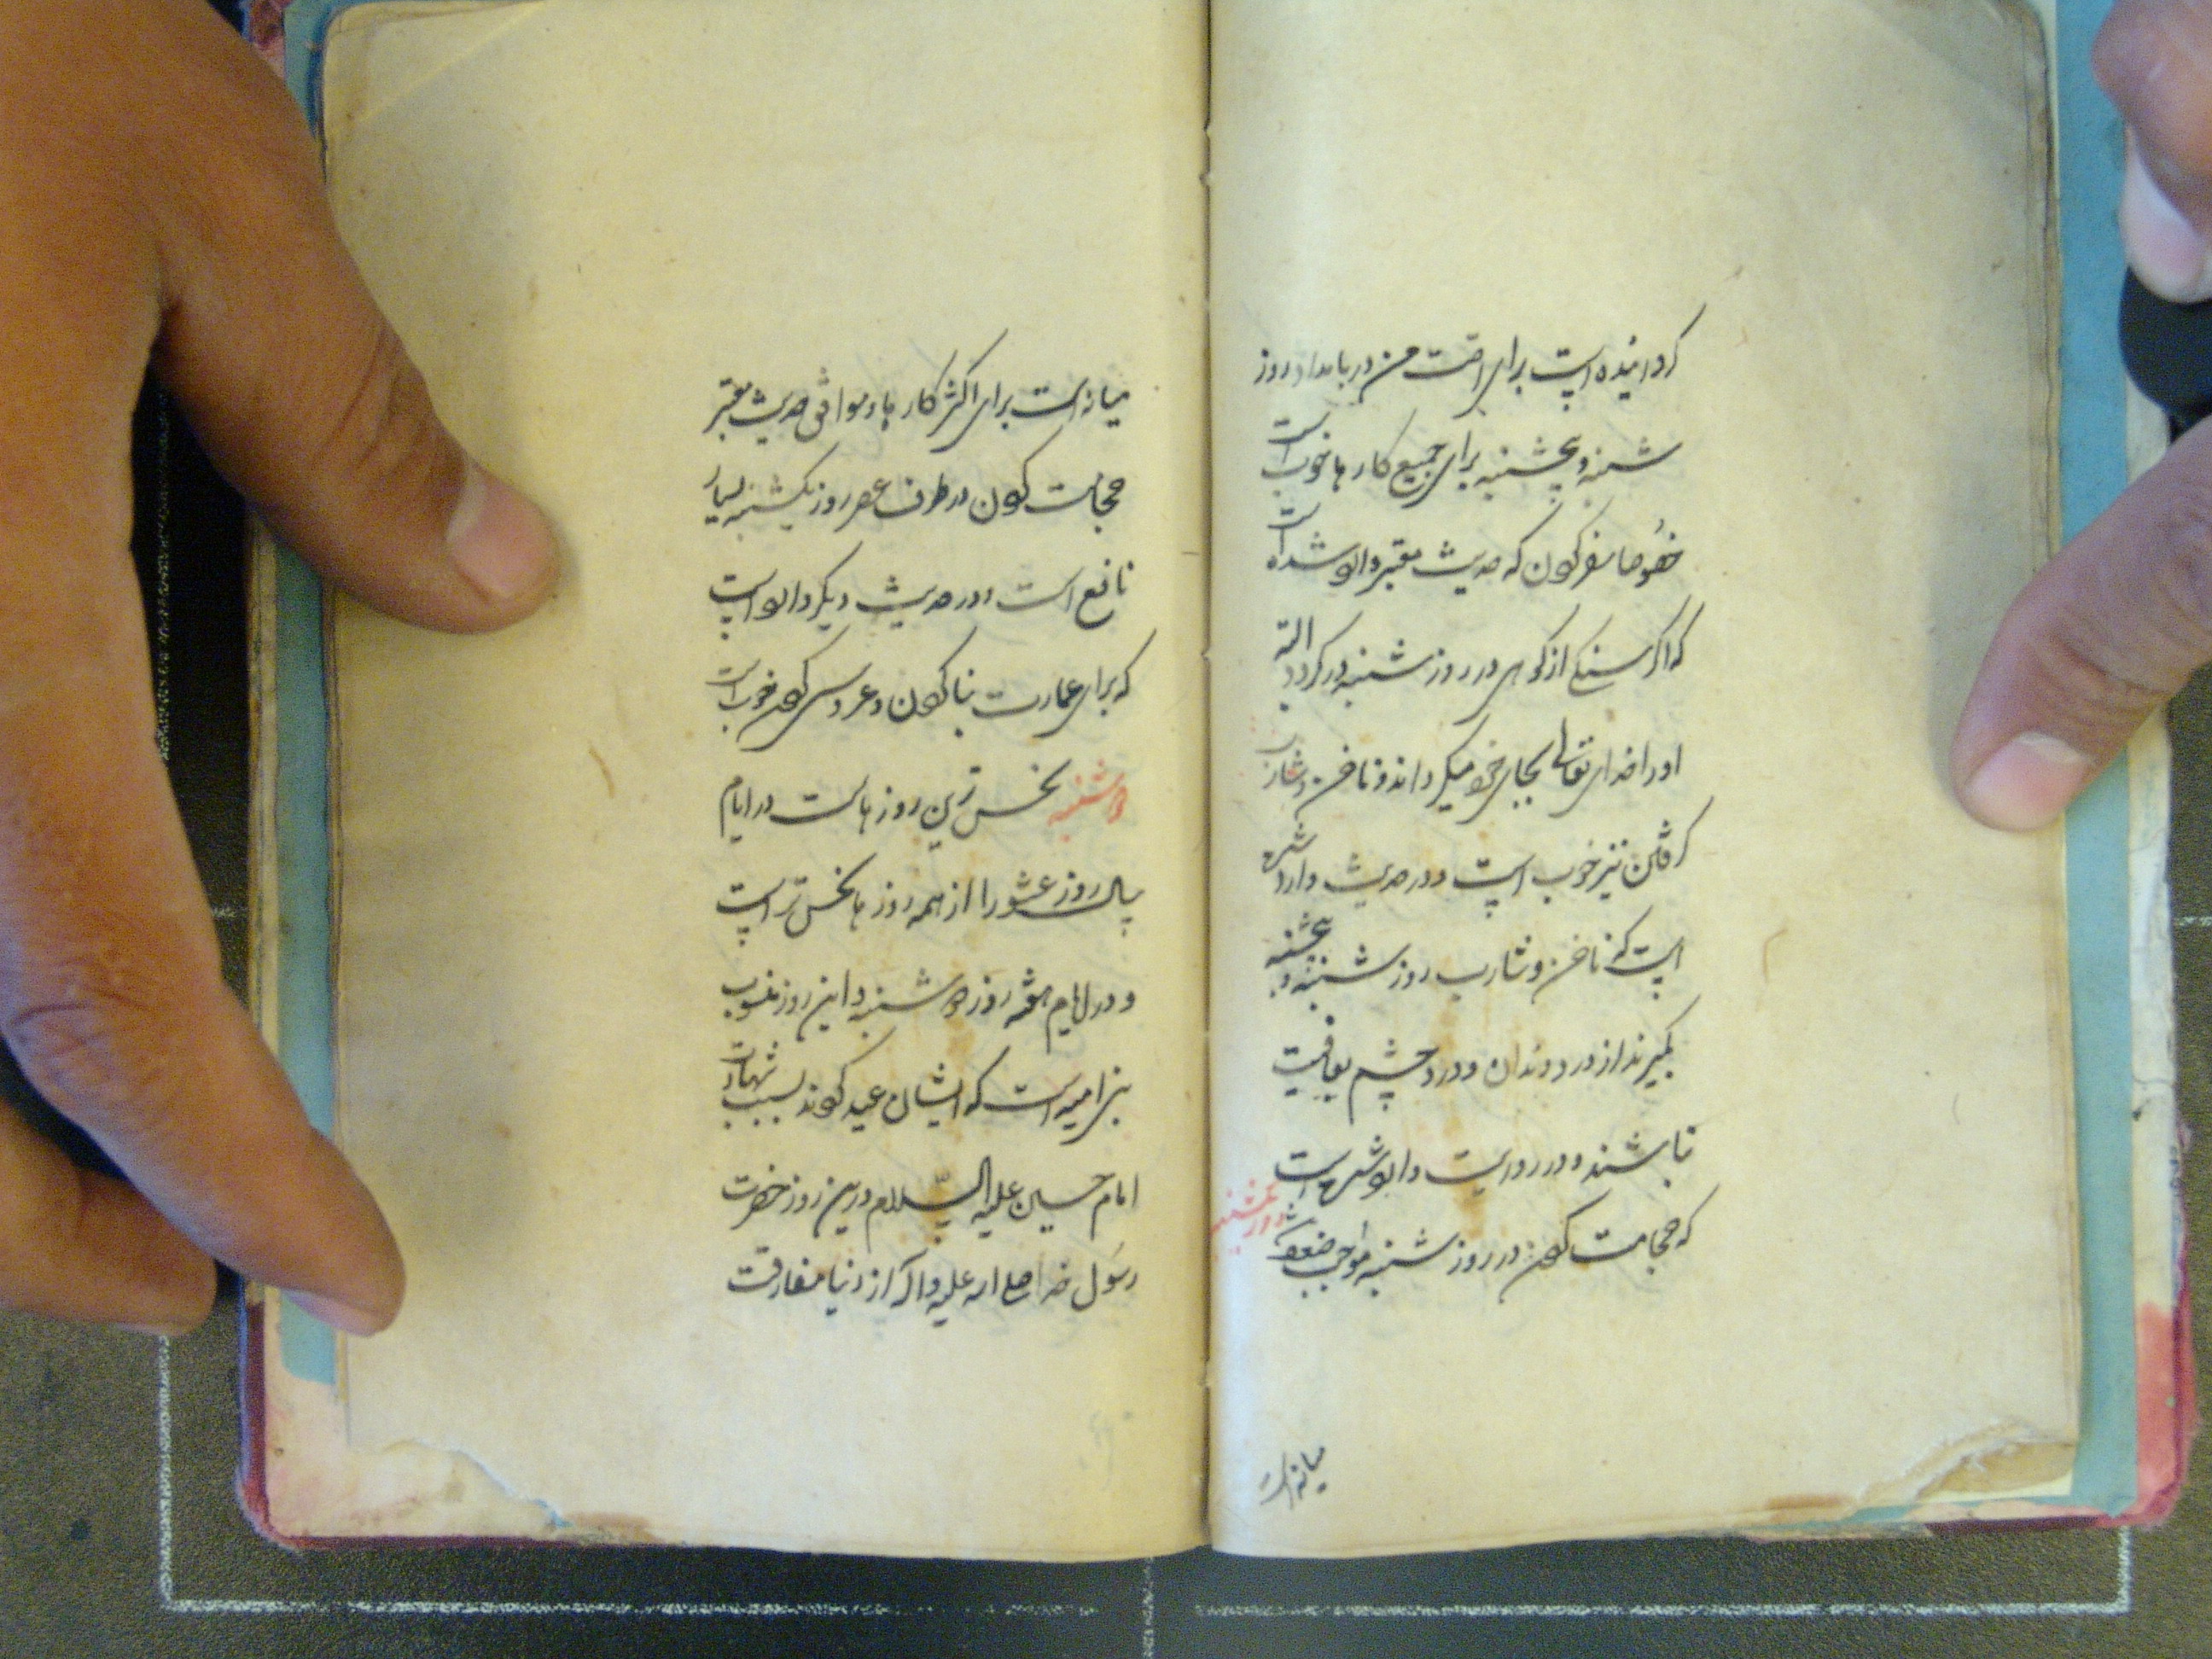 گردانیده است برای امت من در بامداد روز
شنبه و پنجشنبه برای جمیع کارها خوب است
خصُوصا سفر کردن که حدیث معتبر وارد شده است
که اگر سنگی از کوهی در روز شنبه در گردد البته
او را خدای تعالی بجای خود میگرداند و ناخن و شارب
گرفتن نیز خوب است و در حدیث وارد شده
است که ناخن و شارب روز شنبه و پنجشنبه
بگیرند از درد دندان و درد چشم بعافیت
باشند و در روایت وارد شده است
که حجامت کردن در روز شنبه موجب ضعف است
روز یکشنبه
میانه است
میانه است برای اکثر کارها و موافق حدیث معتبر
حجامت کردن در طرف عصر روز یکشنبه بسیار
نافع است و در حدیث دیگر وارد است
که برای عمارت بنا کردن و عروسی کردن خوب است
دوشنبه نحس ترین روزهاست در ایام
سال روز عشورا از همه روزها نحس تر است
و در ایام هفته روز دوشنبه و این روز منسوب
بنی امیه است که ایشان عید کردند بسبب شهادت
امام حسین علیه السّلام و درین روز حضرت
رسُول خدا صلی الله علیه و اله از دنیا مفارقت